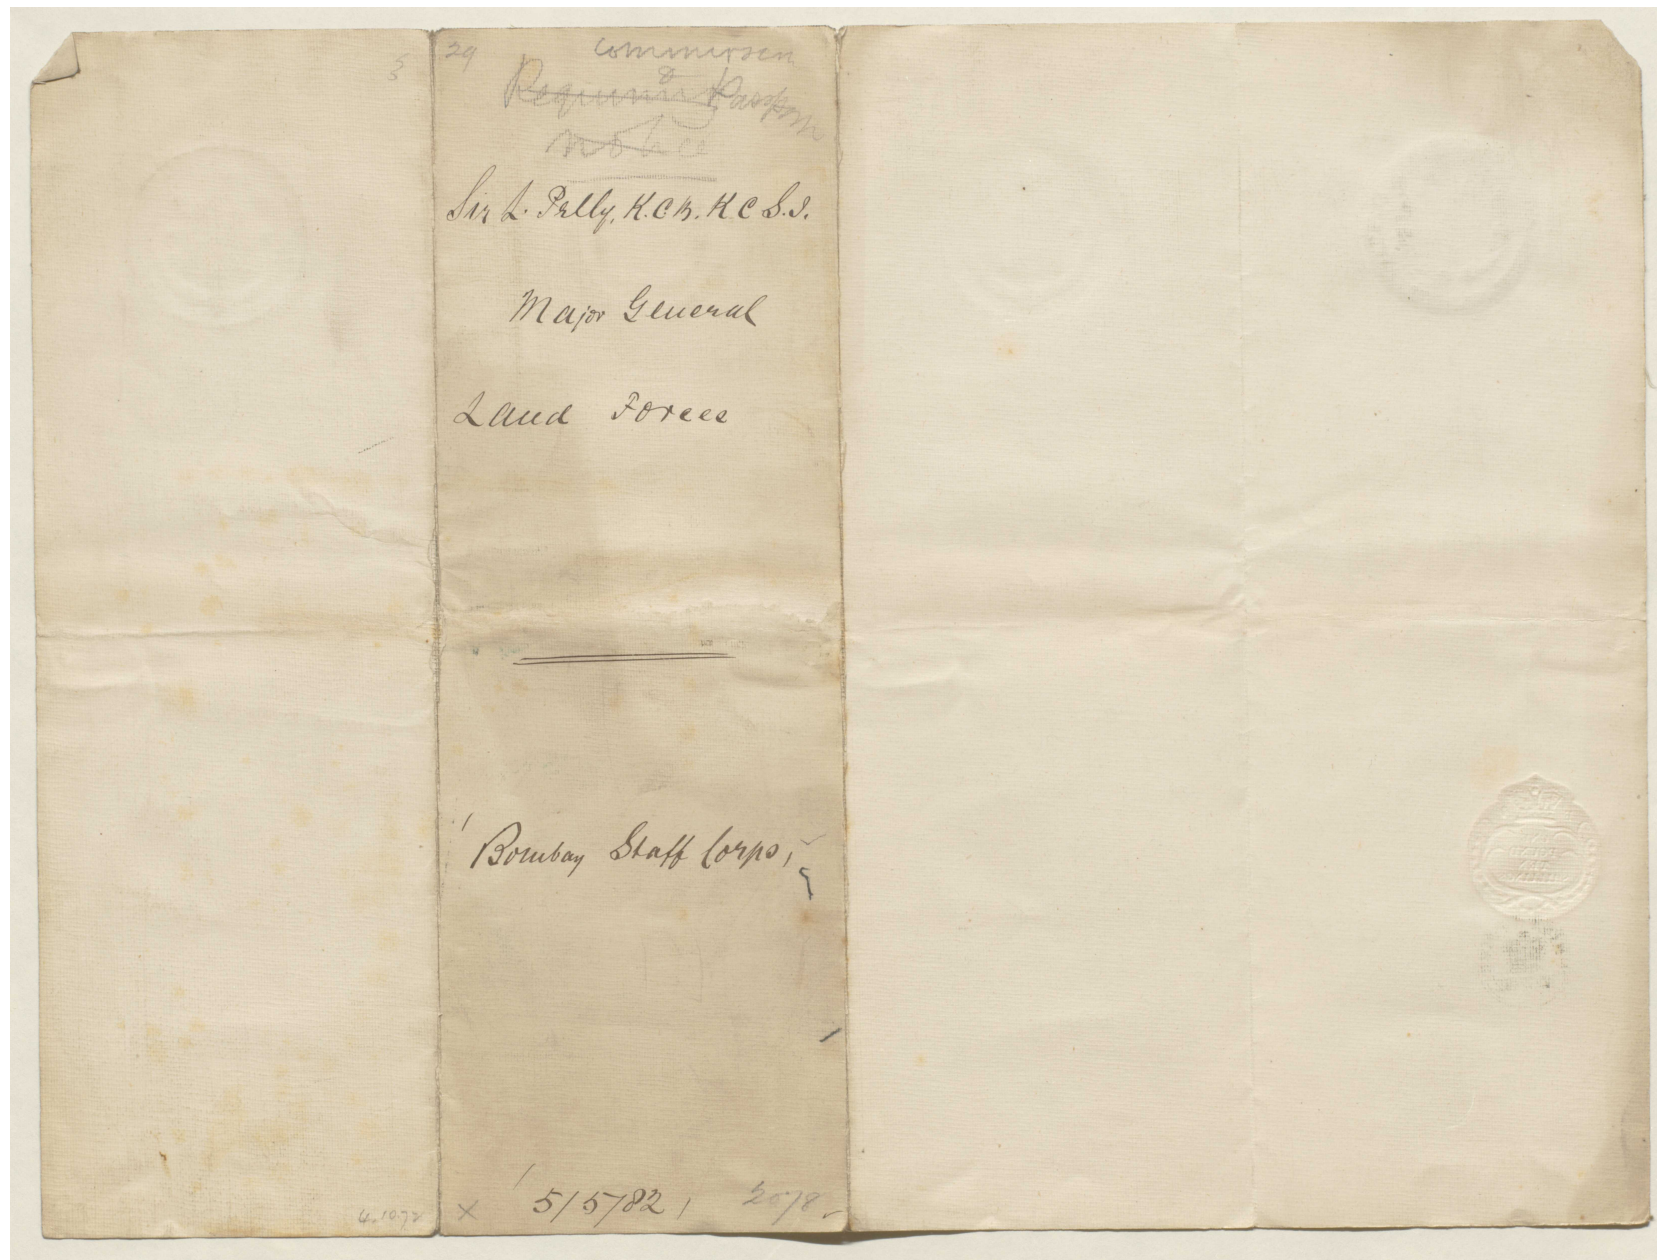 29
Notice
Sir L. Pelly, K.C.B. K.C.S.I.
Major General
Land Forces
Bombay Staff Corps,
4.10.72
x 5/5/82, 2078